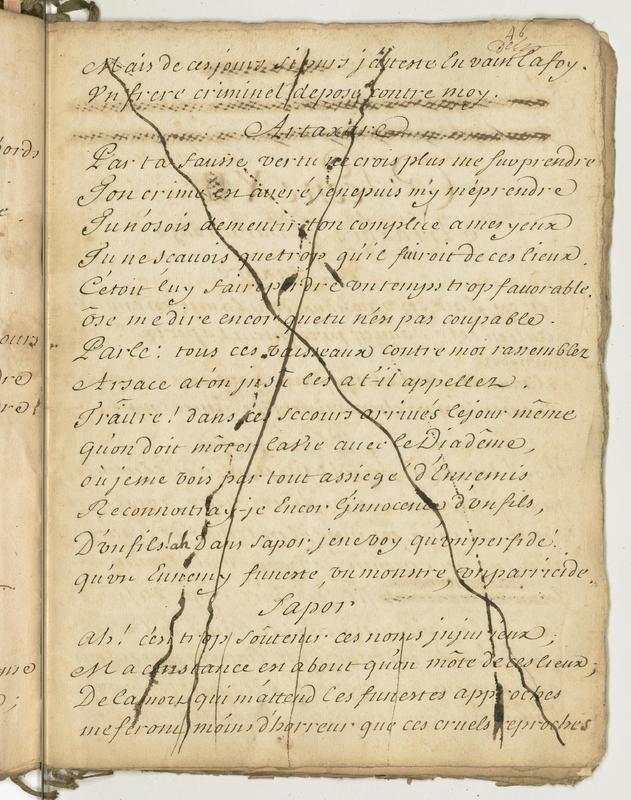 46
Mais de ces jours si purs j'atteste En vain la foy.
Vn frere criminel depose contre moy.
Artaxare
Par ta fausse vertu ne crois plus me surprendre
Ton crime en averé je ne puis m'y méprendre
Tu n'osois dementir ton complice a mes yeux
Tu ne scavois que trop qu'il fuiroit de ces lieux.
C'étoit luy faire perdre vn temps trop favorable.
Ose me dire encor que tu n'es pas coupable.
Parle: tous ces vaisseaux contre moi rassemblez
Arsace a ton jnsu les a t'il appellez.
Traître! dans ces secours arrivés le jour même
qu'on doit m'ôter la Vie avec le Diadême,
où je me vois par tout assiegé d'Ennemis
Reconnoitray-je Encor l'jnnocence d'vn fils,
D'vn fils! ah Dans Sapor je ne voy qu'vn perfide.
qu'vn Ennemy funeste, vn monstre, vn parricide.
Sapor
ah! c'en trop soûtenir ces noms jnjurieux;
Ma constance en a bout qu'on m'ôte de ces lieux;
De la mort qui m'attend les funestes approches
me feront moins d'horreur que ces cruels reproches
ours
dre